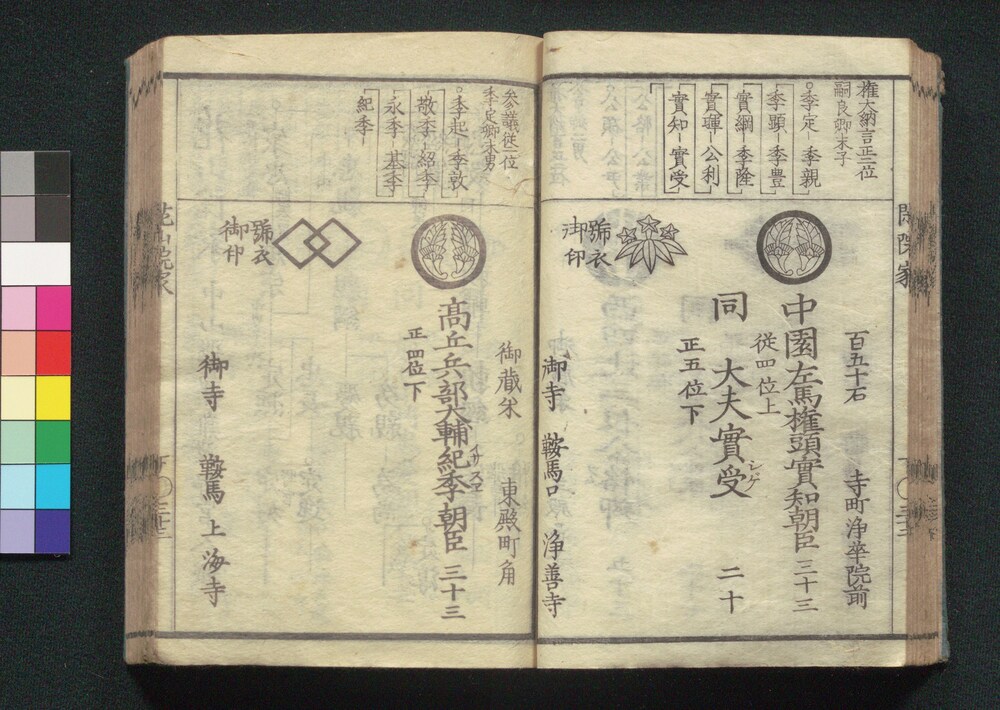 権大納言正二位
嗣良卿末子
○季定-季親
季顕-季豊
實綱-季隆
實廼-公利
實知-實受
百五十石 寺町浄華院前
中園左馬権頭實知朝臣 三十三
従四位上
同 大夫實受 二十
シゲ
正五位下
號衣
御印
御寺 鞍馬口 浄善寺
参議従一位
季定卿末男
○季起-季敦
敬季-紹季
永季-基季
紀季-
御蔵米 東殿町角
高丘兵部大輔紀季朝臣 三十三
正四位下
號衣
御印
御寺 鞍馬 上海寺
閑院家
花山院家